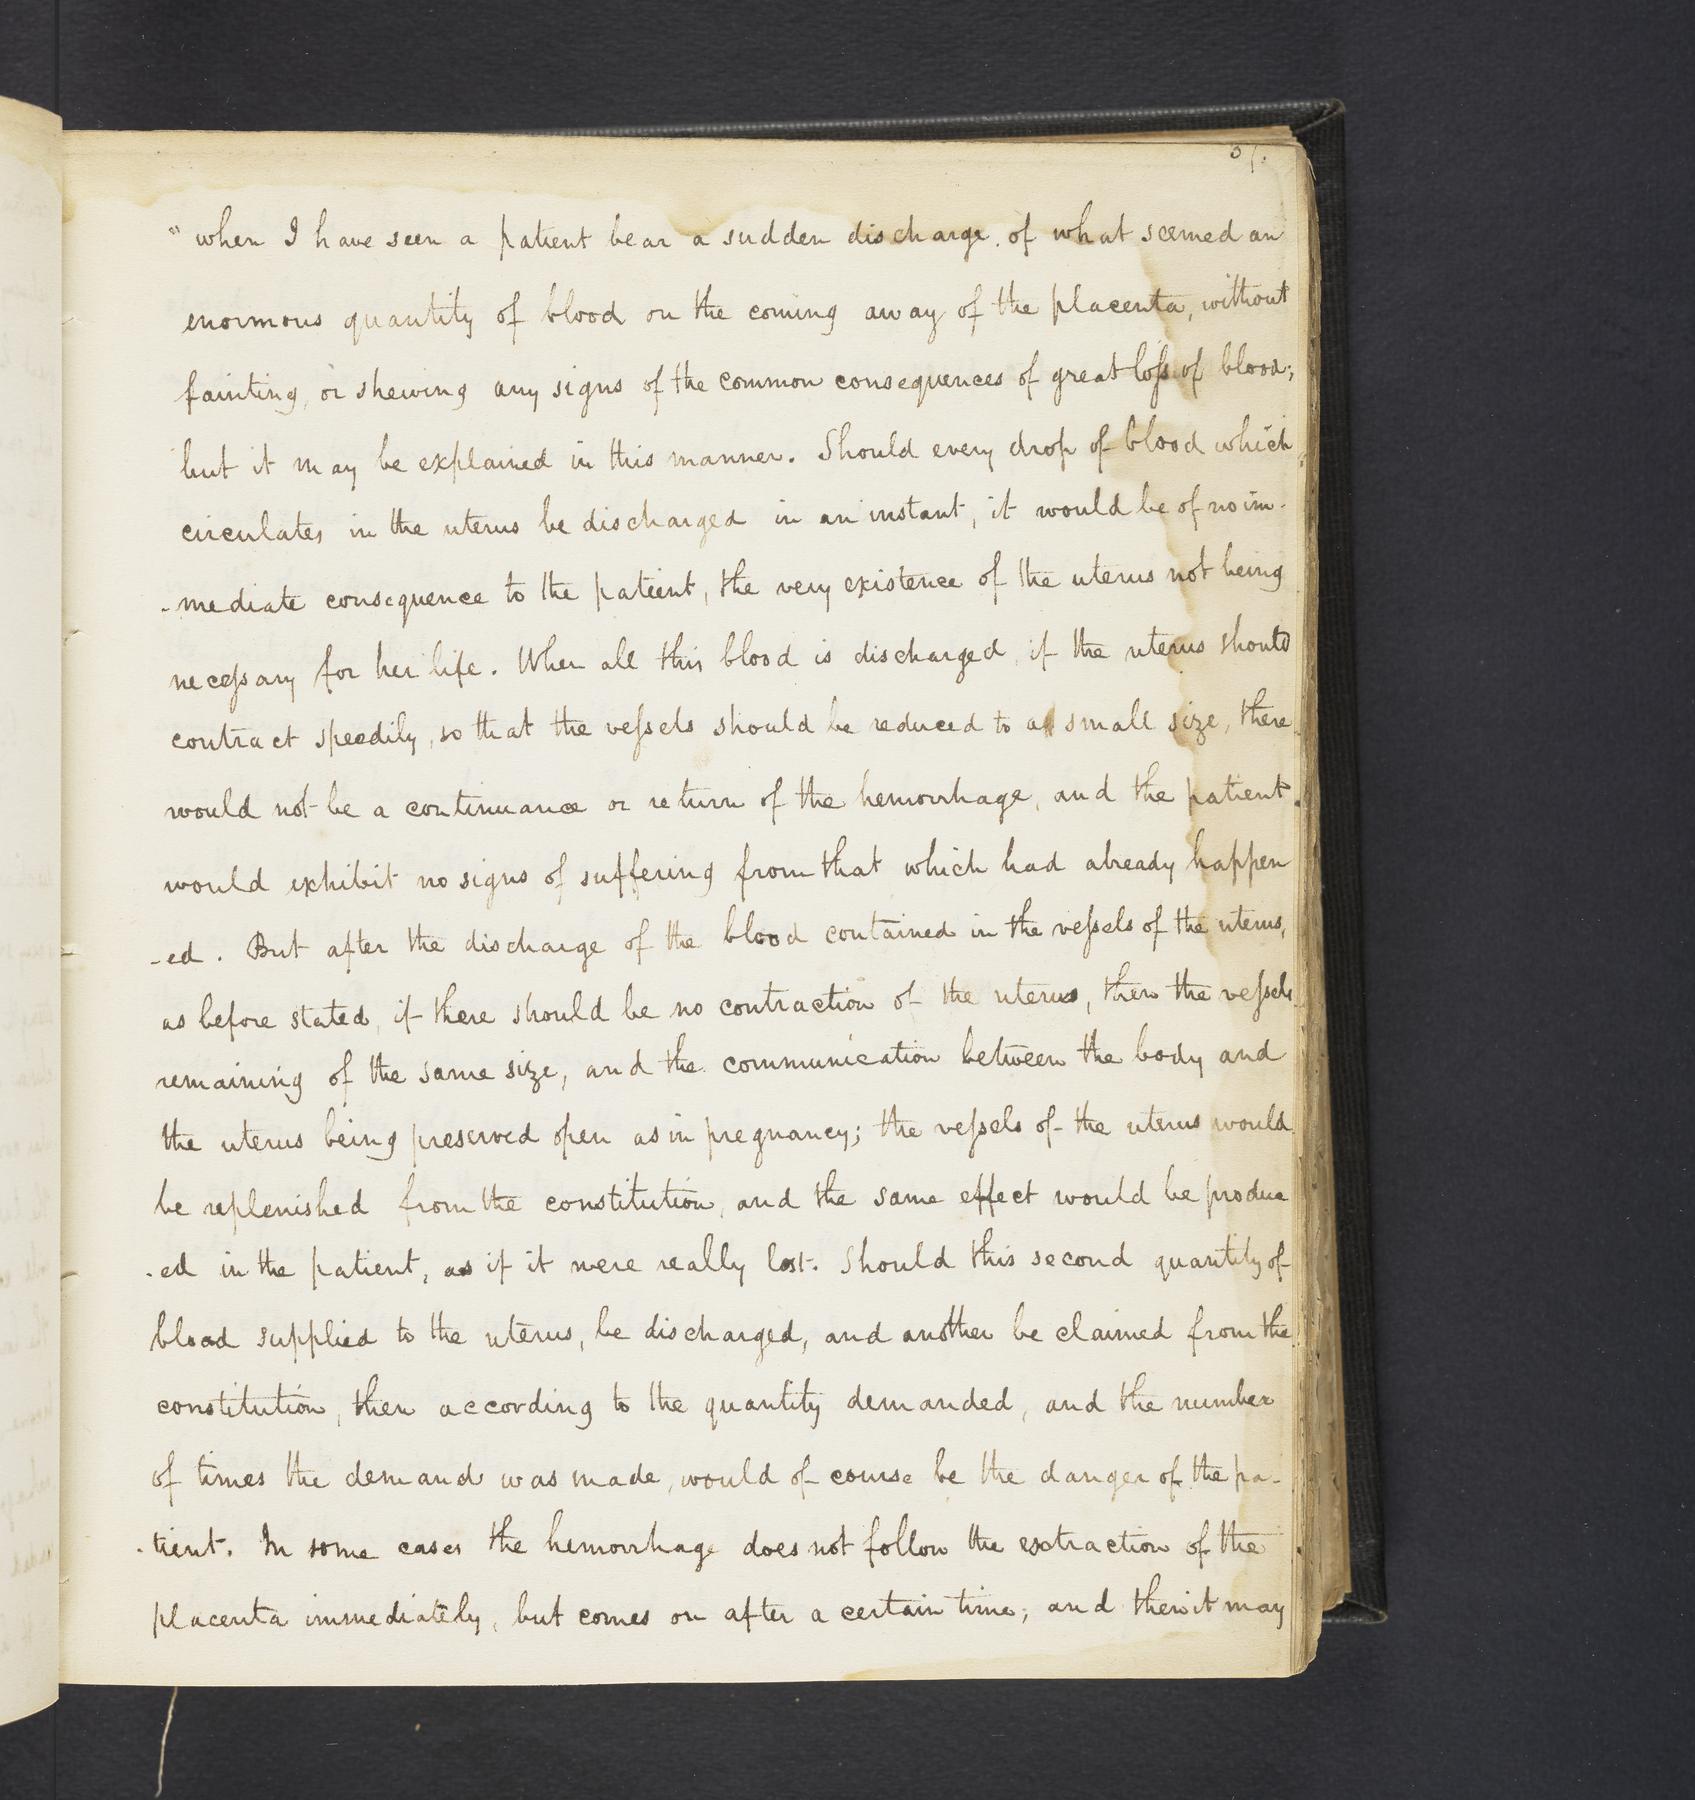 " when I have seen a patient bear a sudden discharge, of what seemed an
enormous quantity of blood on the coming away of the placenta, without
fainting, or shewing any signs of the common consequences of great loſs of blood;
but it may be explained in this manner. Should every drop of blood which
circulates in the uterus be discharged in an instant, it would be of no im-
-mediate consequence to the patient, the very existence of the uterus not being
neceſsary for her life. When all this blood is discharged, if the uterus should
contract speedily, so that the veſsels should be reduced to a small size, there
would not be a continuance or return of the hemorrhage, and the patient
would exhibit no signs of suffering from that which had already happen
-ed. But after the discharge of the blood contained in the veſsels of the uterus,
as before stated, if there should be no contraction of the uterus, then the veſsels
remaining of the same size, and the communication between the body and
the uterus being preserved open as in pregnancy; the veſsels of the uterus would
be replenished from the constitution, and the same effect would be produc
-ed in the patient, as if it were really lost. Should this second quantity of
blood supplied to the uterus, be discharged, and another be claimed from the
constitution, then according to the quantity demanded, and the number
of times the demand was made, would of course be the danger of the pa-
-tient. In some cases the hemorrhage does not follow the extraction of the
placenta immediately, but comes on after a certain time; and then it may